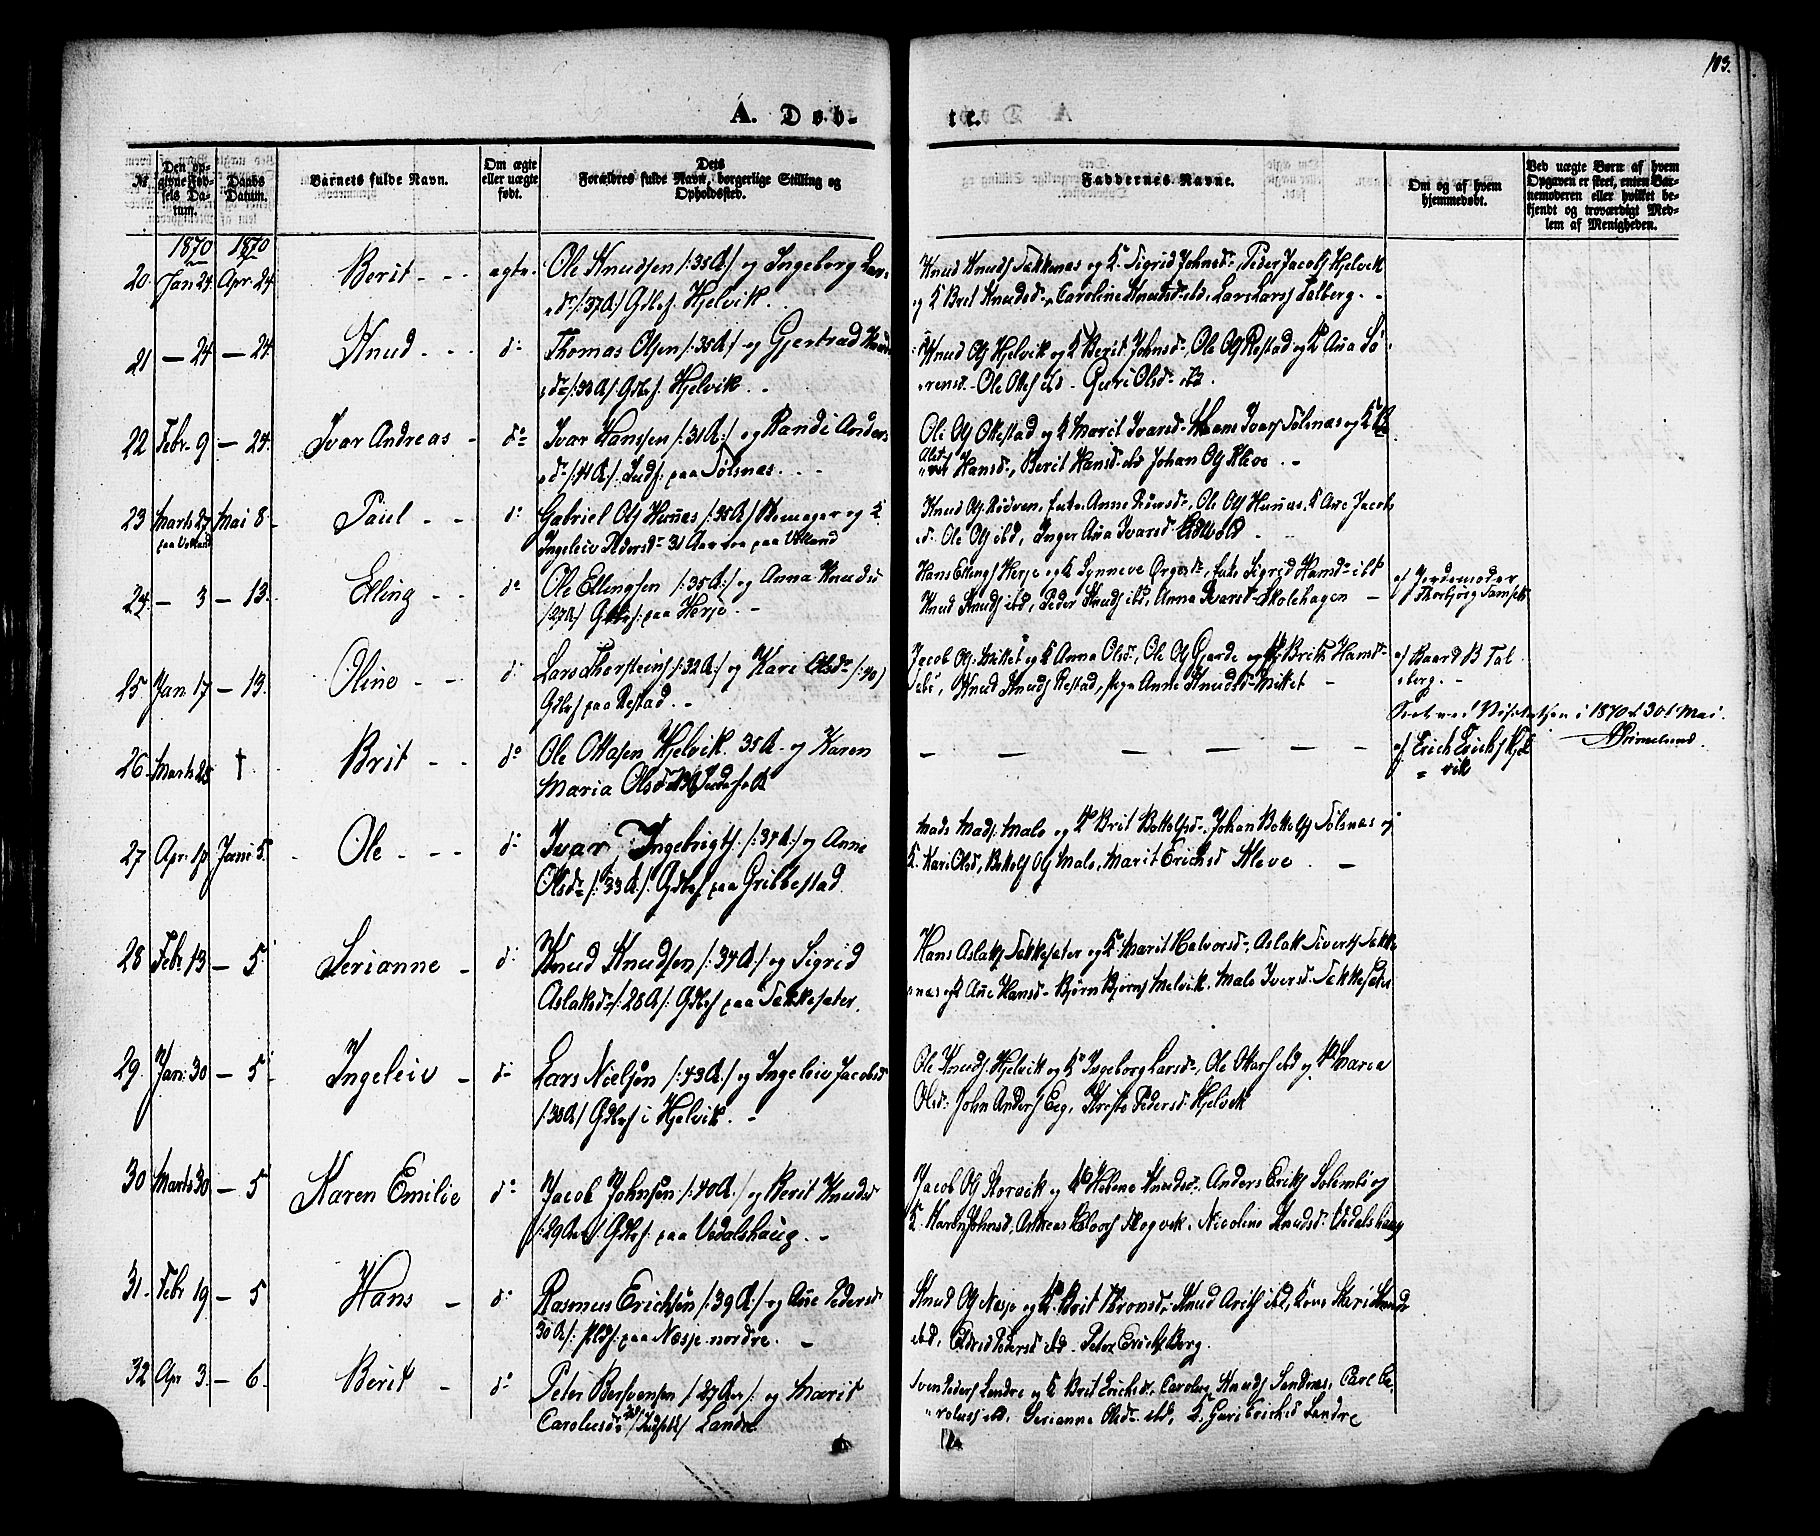 103.
A. Døb-
te.
No
Den opgivne Fødsels Datum.
Daabs Datum.
Barnets fulde Navn.
Om ægte eller uægte født.
Dets Forældres fulde Navn, borgerlige Stilling og Opholdssted.
Faddernes Navne.
Om og af hvem hjemmedøbt.
Ved uægte Børn af hvem Opgaven er skeet, enten Barnemoderen eller hvilket bekjendt og troværdigt Medlem af Menigheden.
1870 1870
20. Jan 24. Apr. 24. Berit - - - ægte. Ole Knudsen /:35 A/ og Ingeborg Lars
d. /:37 A/ Gdbrf Hjelvik.
Knud Knuds Tækknæs og K. Sigrid Johnsd., Peder Jacobs Hjelvik
og K. Brit Knudsd., Caroline Knudsd. ibd, Lars Lars Talberg. -
21 — 24 — 24 Knud - - - do Thomas Olsen /:35 A/ og Gjertrud Knuds
d. /:33 A/ Gdbrf. Hjelvik. -
Knud Ols Hjelvik og K. Berit Johnsd., Ole Ols Restad og K. Ana Sø-
rensd. Ole Ottes ibd - Guri Olsd. ibd.
22 Febr. 9 — 24. Ivar Andreas - do Ivar Hanssen /:31 A:/ og Randi Anders
d. /:41 A/. Indf. paa Tølsnæs. - -
Ole Ols Ottestad og K. Marit Ivarsd. Hans Ivars Tølsnæs og K.
Hansd., Berit Hansd. ibd Johan Ols Kleve. -
23 Marts 27 Mai 8. Paul - - do Gabriel Ols Hernæs /:38 A/ og K.
paa Volland
Ingeleiv Pedersd. 31 Aar paa Volland
Knud Ols. Rødven, Enke Anne Simonsd., Ole Ols Hernæs, K. Ane Jacobs
d. Ole Ols ibd, Inger Ana Ivarsd.
24. — 3 — 13. Elling - - do Ole Ellingsen /:35 A:/ og Anna Knudsd
/:27 A/ Gdbrf: paa Herje. -
Hans Ellings Herje og K. Synneve Orgesd., Enke Sigrid Hansd. ibd
Knud Knuds ibd, Peder Knuds ibd, Anna Ivarsd. Skolehagen -
af Jordemoder
Thorbjørg
25 Jan. 17 — 13. Oline - - do Lars Thorsteins /:32 A:/ og Kari Olsd. /:40/
Gdbrf paa Restad. -
Jacob Ols. Mittet og K. Anna Olsd., Ole Ols Gjerde og K. Brit Hansd.
ibd, Knud Knuds Restad, Pige Anne Knudsd. Mittet -
af Baard B Tal
berg. -
Seet ved Visitatsen i 1870 d. 30 t Mai.
26. Marts 28 † Brit - - do Ole Ottesen Hjelvik. 35 A. og Karen
Maria Olsd.
— — — — —
af Erich Erichs Hjel
vik
27 Apr. 10 Juni 5. Ole - - - do Ivar Ingebrigts. /:37 A:/ og Anne
Olsd. /:33 A/. Gdbrf. paa Gribbestad.
Mads Mads. Malo og K. Brit Bottolfsd. Johan Bottolfs Tølsnæs og
K. Kari Olsd, Bottolf Ols Malo, Marit Erichsd Kleve. —
28 Febr. 13 — 5. Serianne - do Knud Knudsen /:34 A:/ og Sigrid
Aslaksd. /:28 A/. Gdbrf paa Tækkesæter.
Hans Aslaks Tækkesæter og K. Marit Halvorsd. Aslak Siverts Tække
snæs og K. Ane Hansd. Bjørn Bjørns Mælvik. Malo Iversd. Tækkesæter
29. Jan. 30 — 5. Ingeleiv - do Lars Nielsen /:43 A:/ og Ingeleiv Jacobsd
/:38 A/ Gdbrf i Hjelvik. -
Ole Knuds. Hjelvik og K. Ingeborg Larsd., Ole Ottars ibd og K. Maria
Olsd. John Anders Eeg, Kirsti Pedersd. Hjelvik
30 Marts 30 — 5 Karen Emilie do Jacob Johnsen /:40 A:/ og Berit Knudsd
/:29 Aar/. Gdbrf. paa Vedalshaug. -
Jacob Ols Storvik og K. Helene Knudsd., Anders Eriks Solemli og
K. Karen Johnsd. Andreas Skogvik. Nicoline Knudsd. Vedalshaug
31. Febr. 19 — 5 Hans - do Rasmus Erichsen /:39 A:/ og Ane Pedersd
30 A/: Pldf: paa Næsje nordre. -
Knud Ols Næsje og K. Brit Thronsd. Knud ibd, Kone Kari Knudsd
ibd, Eldrid Pedersd ibd. Peter Erichs Berg.
32. Apr 3. — 6. Berit - do Peter Bersvensen /27 Aar/: og Marit
Carolusd. /Indsidd/ Landre
Sven Peders Landre og K. Brit Erichsd. Carolus Knuds Sandnæs, Carl Ca-
rolus ibd. Serianne Olsd. ibd, K. Guri Erichsd Landre